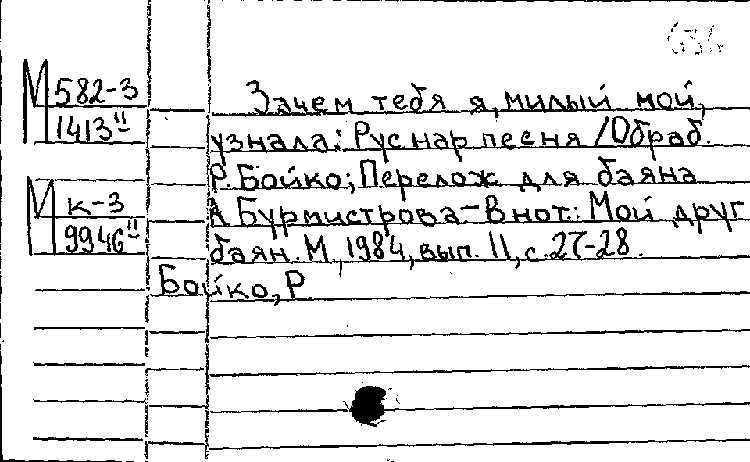 М 582-3
1413"
М к-3
9946"
Зачем тебя я, милый мой,
узнала: Рус нар песня / Обраб.
Р. Бойко; Перелож для баяна
А Бурмистрова - В нот: Мой друг
баян. М, 1984, вып. 11, с. 27-28.
Бойко, Р.